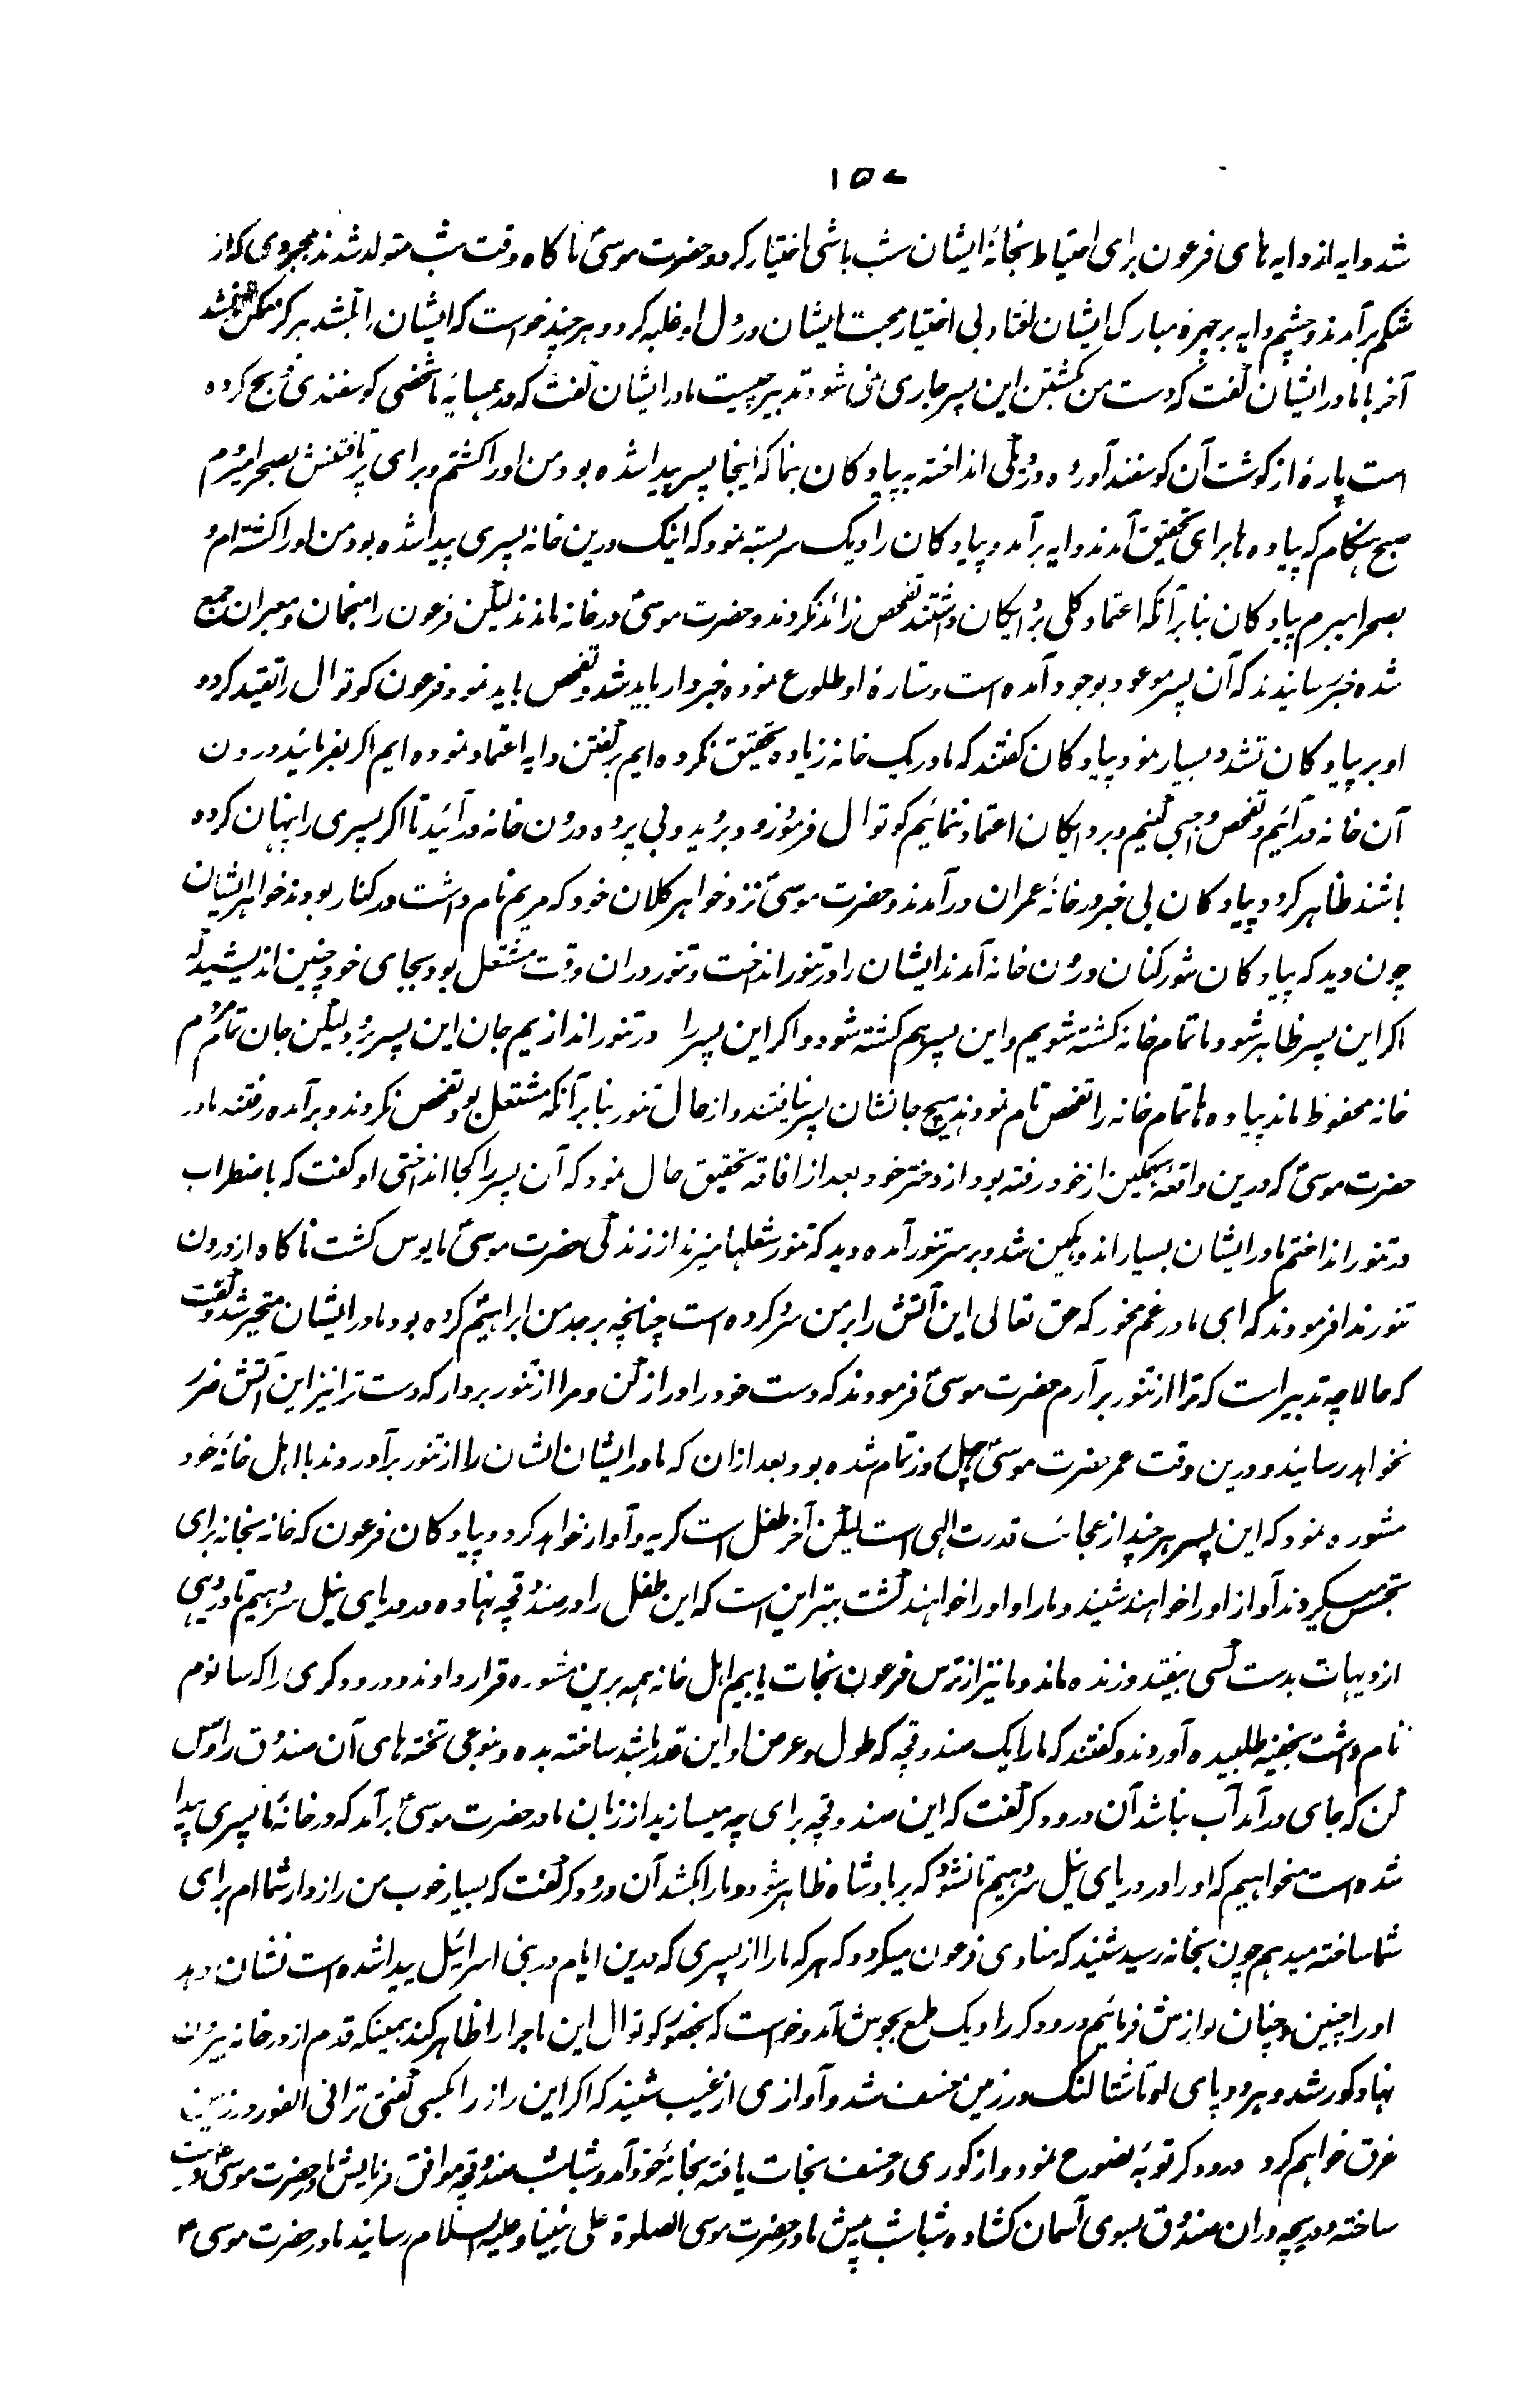 ۱۵۷
شد و دایه از دایه های فرعون برای احتیاط بخانهٔ ایشان شب باشی اختیار کرد و حضرت موسیٰ ناکاه وقت شب متولد شدند بمجردی که از
شکم برآمدند و چشم دایه بر چهرهٔ مبارک ایشان افتاد بی اختیار محبت ایشان در دل او غلبه کرد و هر چند خواست که ایشان را بکشد هرکز ممکن نشد
آخر با مادر ایشان کفت که دست من بکشتن این پسر جاری نمی شود تدبیر چیست مادر ایشان کفت که در همسایهٔ ما شخصی کوسفندی ذبح کرده
است پارهٔ از کوشت آن کوسفند آورده در دیکی انداخته به پیادکان بنما که اینجا پسر پیدا شده بود من او را کشتم و برای پرتافتنش بصحرا میروم
صبح هنکام که پیاده ها برای تحقیق آمدند دایه برآمد و پیادکان را دیک سربسته نمود که اینک درین خانه پسری پیدا شده بود من او را کشته ام و
بصحرا میبرم پیادکان بنابر آنکه اعتماد کلی بر دایکان داشتند تفحص زائد نکردند و حضرت موسیٰ در خانه ماندند لیکن فرعون را منجمان و معبران جمع
شده خبر رسانیدند که آن پسر موعود بوجود آمده است و ستارهٔ او طلوع نموده خبردار باید شد و تفحص باید نمود فرعون کوتوال را تقید کرد و
او بر پیادکان تشدد بسیار نمود پیادکان کفتند که ما در یک خانه زیاده تحقیق نکرده ایم بر کفتن دایه اعتماد نموده ایم اکر بفرمائید درون
آن خانه در آئیم و تفحص واجبی کنیم و بر دایکان اعتماد ننمائیم کوتوال فرمود زود بروید و بی پرده درون خانه در آئید تا اکر پسری را پنهان کرده
باشند ظاهر کردد پیادکان بی خبر در خانهٔ عمران در آمدند و حضرت موسیٰ نزد خواهر کلان خود که مریم نام داشت در کنار بودند خواهر ایشان
چون دید که پیادکان شور کنان درون خانه آمدند ایشان را در تنور انداخت و تنور دران وقت مشتعل بود بجای خود چنین اندیشید که
اکر این پسر ظاهر شود ما تمام خانه کشته شویم و این پسر هم کشته شود و اکر این پسر را در تنور اندازیم جان این پسر رود لیکن جان تمام مردم
خانه محفوظ ماند پیاده ها تمام خانه را تفحص تام نمودند هیچ جا نشان پسر نیافتند و از حال تنور بنابر آنکه مشتعل بود تفحص نکردند و برآمده رفتند مادر
حضرت موسیٰ که درین واقعه سهمکین از خود رفته بود از دختر خود بعد از افاقه تحقیق حال نمود که آن پسر را کجا انداختی او کفت که باضطراب
در تنور انداختم مادر ایشان بسیار اندوهکین شد و بر سر تنور آمده دید که تنور شعلها میزند از زندکی حضرت موسیٰ مایوس کشت ناکاه از درون
تنور ندا فرمودند که ای مادر غم مخور که حق تعالی این آتش را بر من سرد کرده است چنانچه بر جد من ابراهیمؑ کرده بود مادر ایشان متحیر شد و کفت
که حالا چه تدبیر است که ترا از تنور برآرم حضرت موسیٰ فرمودند که دست خود را دراز کن و مرا از تنور بردار که دست ترا نیز این آتش ضرر
نخواهد رسانید و درین وقت عمر حضرت موسیٰ چهل روز تمام شده بود بعد ازان که مادر ایشان ایشان را از تنور برآوردند با اهل خانهٔ خود
مشوره نمود که این پسر هر چند از عجائب قدرت الهی است لیکن آخر طفل است کریه و آواز خواهد کرد و پیادکان فرعون که خانه بخانه برای
تجسس میکردند آواز او را خواهند شنید و ما را و او را خواهند کشت بهتر این است که این طفل را در صندوقچه نهاده در دریای نیل سر دهیم تا در دیهی
از دیهات بدست کسی بیفتد و زنده ماند و ما نیز از ترس فرعون نجات یابیم اهل خانه همه برین مشوره قرار دادند و درودکری را که سانوم
نام داشت بخفیه طلبیده آوردند و کفتند که ما را یک صندوقچه که طول و عرض او این قدر باشد ساخته بده و بنوعی تخته های آن صندوق را وصل
کن که جای در آمد آب نباشد آن درودکر کفت که این صندوقچه برای چه میسازید از زبان مادر حضرت موسیٰ برآمد که در خانهٔ ما پسری پیدا
شده است میخواهیم که او را در دریای نیل سر دهیم تا نشود که بر بادشاه ظاهر شود و ما را بکشد آن درودکر کفت که بسیار خوب من رازدار شما ام برای
شما ساخته میدهم چون بخانه رسید شنید که منادی فرعون میکردد که هر که ما را از پسری که درین ایام در بنی اسرائیل پیدا شده است نشان دهد
او را چنین و چنان نوازش فرمائیم درودکر را دیک طمع بجوش آمد و خواست که بحضور کوتوال این ماجرا را ظاهر کند بمجردیکه قدم از در خانه بیرون
نهاد کور شد و هر دو پای او تا شتالنک در زمین خسف شد و آوازی از غیب شنید که اکر این راز را بکسی کفتی ترا فی الفور در زمین
غرق خواهم کرد درودکر توبهٔ نصوح نمود و از کوری و خسف نجات یافته بخانهٔ خود آمد و شباشب صندوقچه موافق فرمایش مادر حضرت موسیٰ درست
ساخته و دریچه دران صندوق بسوی آسمان کشاده شباشب پیش مادر حضرت موسی الصلوة علی نبینا و علیه السلام رسانید مادر حضرت موسی ۴